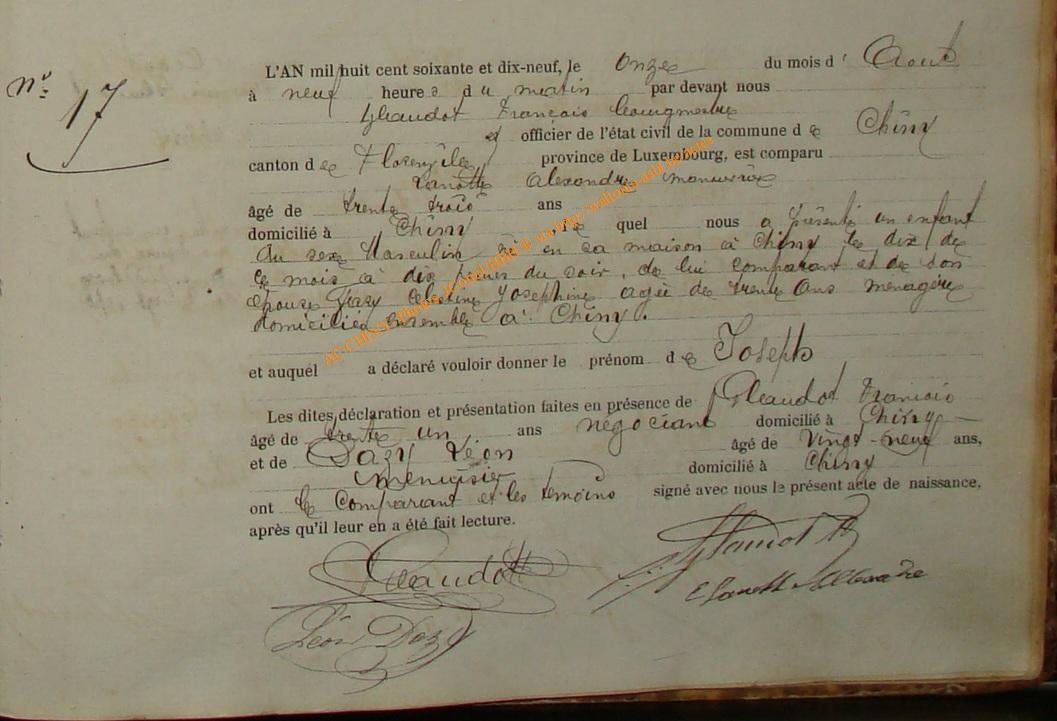 N° 17
L'AN mil huit cent soixante et dix-neuf, le onze du mois d' Aout
à neuf heures du matin par devant nous
François Bourgmestre
et officier de l'état civil de la commune de Chiny
canton de Florenville province de Luxembourg, est comparu
Zanotte Alexandre manœuvre
âgé de trente trois ans
domicilié à Chiny lequel nous a présenté un enfant
du sexe Masculin né en sa maison à Chiny le dix de
ce mois à dix heures du soir, de lui comparant et de son
épouse Célestine Josephine agée de trente ans ménagère
domiciliés ensemble à Chiny.
et auquel a déclaré vouloir donner le prénom de Joseph
Les dites déclaration et présentation faites en présence de François
âgé de trente un ans négociant domicilié à Chiny
et de Dazy Léon âgé de vingt-neuf ans,
menuisier domicilié à Chiny
ont le comparant et les témoins signé avec nous le présent acte de naissance,
après qu'il leur en a été fait lecture.
Léon Dazy